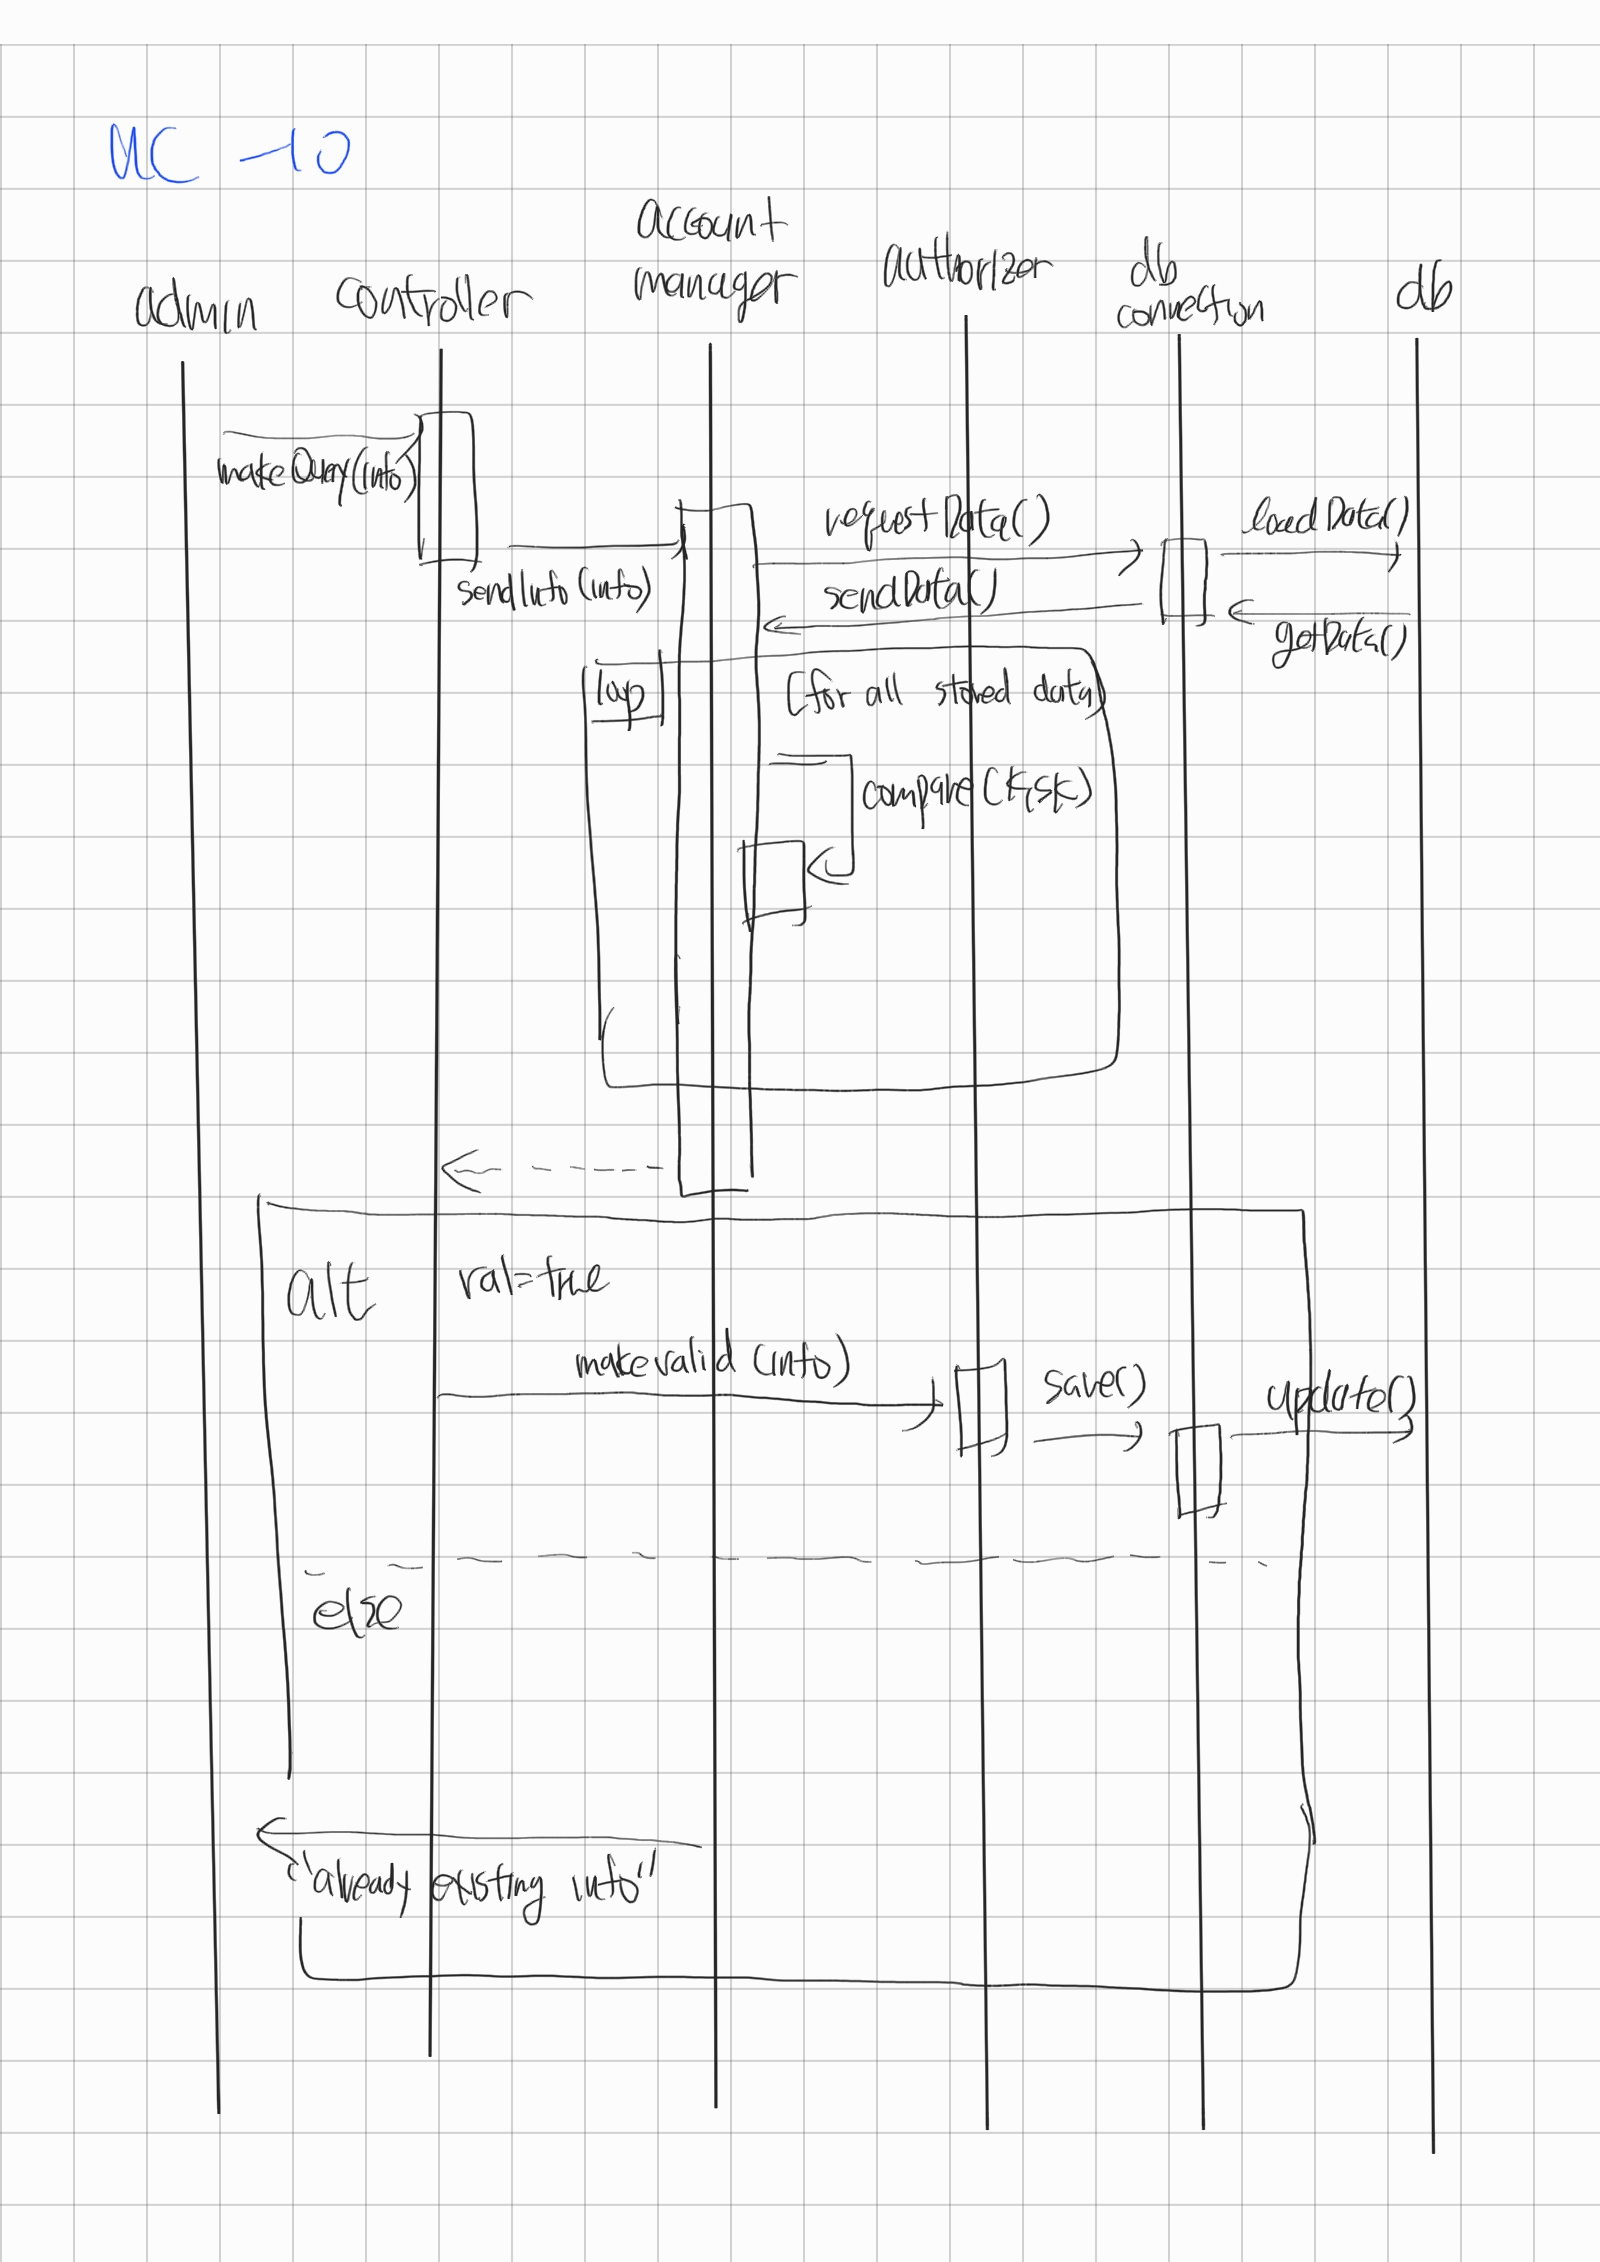 UC-10
admin
controller
account
manager
authorizer
db
connection
db
makeQuery(info)
sendInfo(info)
requestData()
loadData()
sendData()
getData()
loop
[for all stored data]
compare(K,SK)
alt
val=true
makevalid(info)
save()
update()
else
"already existing info"